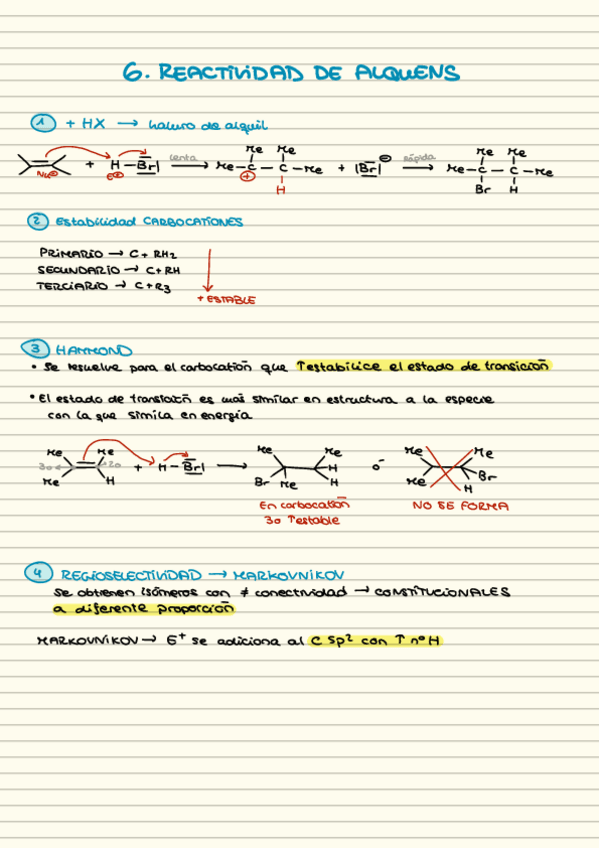 6. REACTIVIDAD DE ALQUENS
1 + HX → haluro de alquil
Me Me Me Me
+ H-Br| lenta → Me-C-C-Me + |Br| ⊖ rápida → Me-C-C-Me
Nu⊖ E⊕ ⊕ H Br H
2 Estabilidad CARBOCATIONES
PRIMARIO → C+RH2
SECUNDARIO → C+RH
TERCIARIO → C+R3
+ ESTABLE
3 HAMMOND
• Se resuelve para el carbocatión que ↑estabilice el estado de transición
• El estado de transición es más similar en estructura a la especie
con la que simila en energía
Me Me Me Me Me Me
3o 2o + H-Br| → H ó Br
Me H Br Me H Me H
En carbocatión NO SE FORMA
3o ↑estable
4 REGIOSELECTIVIDAD → MARKOVNIKOV
Se obtienen isómeros con ≠ conectividad → CONSTITUCIONALES
a diferente proporción
MARKOVNIKOV → E+ se adiciona al C sp2 con ↑ nº H